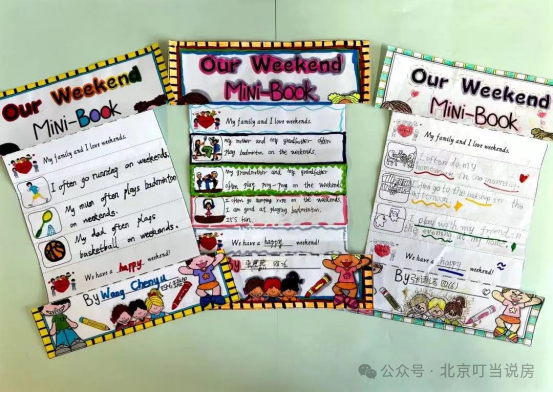 Our Weekend
Mini-Book
My family and I love weekends.
I often go running on weekends.
My mum often plays badminton
on weekends.
My dad often plays
basketball on weekends.
We have a happy weekend!
By Wang Chenyu
Our Weekend
Mini-Book
My family and I love weekends.
my mother and my grandfather often
play badminton on the weekends.
My grandmother and my grandfather
often play ping-pong on the weekends.
I often go running rope on the weekends.
I am good at playing badminton.
It's fun.
We have a happy weekend!
By
Our Weekend
Mini-Book
My family and I love weekends.
I often do my
in the morning
I often go to the
afternoon
I play with my friends in
the evening at my home.
We have a happy weekend!
By
公众号·北京叮当说房